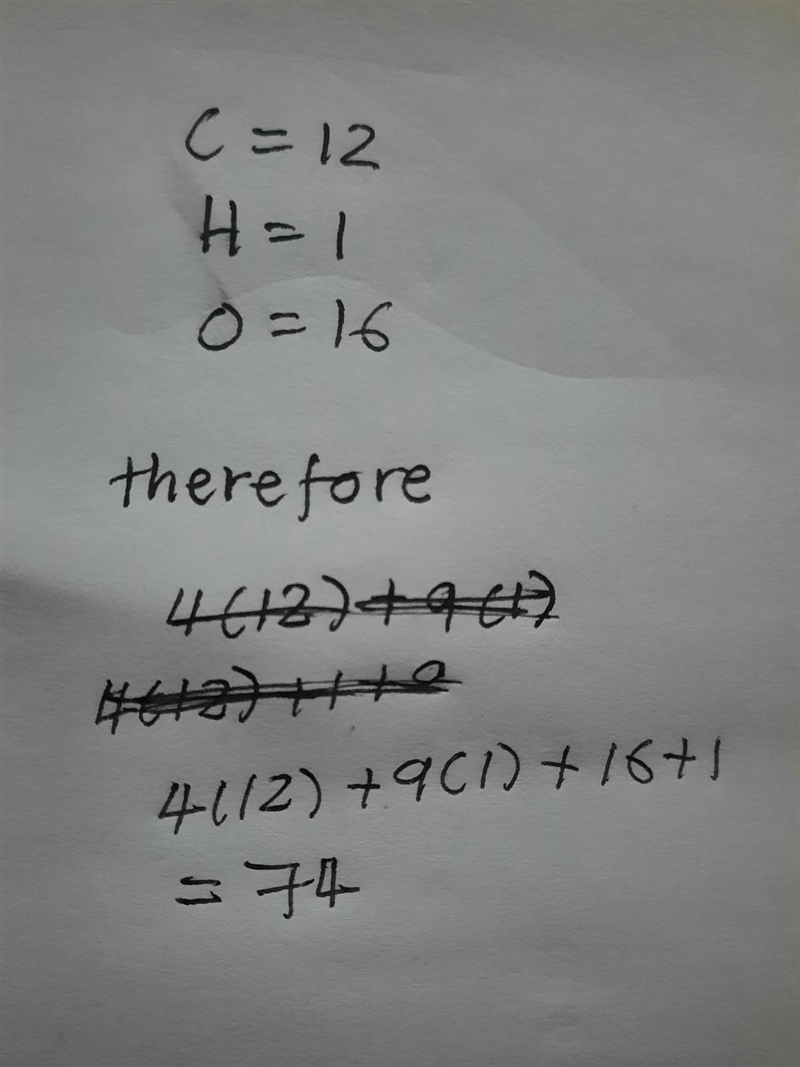 C = 12
H = 1
O = 16
therefore
4(12) + 9(1)
4(12) + 1 + 0
4(12) + 9(1) + 16 + 1
= 74